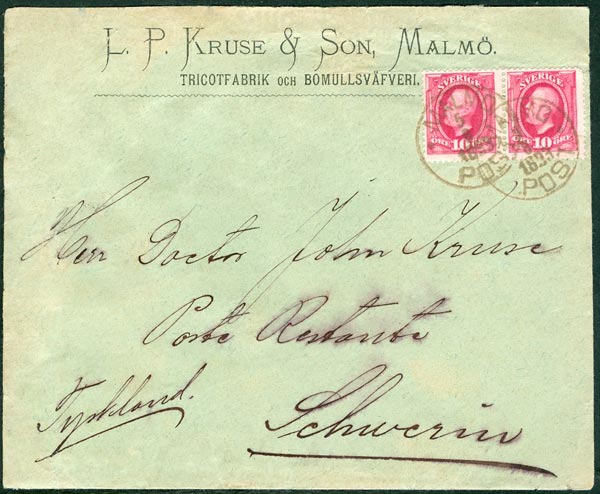 L. P. KRUSE & SON, MALMÖ.
TRICOTFABRIK OCH BOMULLSVÄFVERI.
SVERIGE SVERIGE
ÖRE 10 ÖRE 10 ÖRE
POST
Herr Doctor John Kruse
Poste Restante
Tyskland.
Schwerin